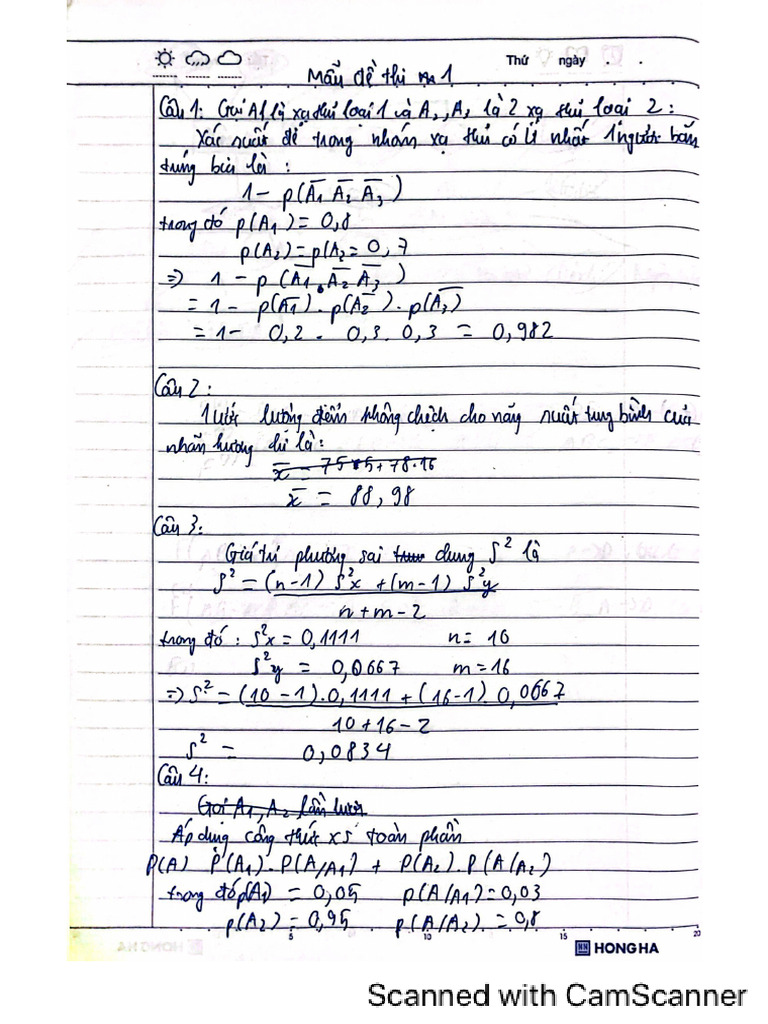 Thứ ngày . .
Mẫu đề thi 1
Câu 1: Gọi A1 là xạ thủ loại 1 và A2, A3 là 2 xạ thủ loại 2 :
Xác suất để trong nhóm xạ thủ có ít nhất 1 người bắn
trúng bia là :
1 - p(A̅1 A̅2 A̅3)
trong đó p(A1) = 0,8
p(A2) = p(A2 = 0,7
=> 1 - p(A̅1 . A̅2 A̅3)
= 1 - p(A̅1) . p(A̅2) . p(A̅3)
= 1 - 0,2 . 0,3 . 0,3 = 0,982
Câu 2 :
1 ước lượng điểm không chệch cho năng suất trung bình của
nhãn hương là :
x̅ = 75 + 78.16
x̅ = 88,98
Câu 3:
Giá trị phương sai dung S² là
S² = (n-1) S²x + (m-1) S²y
n + m - 2
trong đó : S²x = 0,1111 n = 10
S²y = 0,0667 m = 16
=> S² = (10 - 1).0,1111 + (16-1). 0,0667
10 + 16 - 2
S² = 0,0834
Câu 4:
Gọi A1, A2 lần lượt
Áp dụng công thức xs toàn phần
P(A) P(A1). P(A/A1) + P(A2). P(A/A2)
trong đó p(A1) = 0,05 p(A/A1) = 0,03
p(A2) = 0,95 p(A/A2) = 0,8
5 10 15 20
HONG HA
Scanned with CamScanner